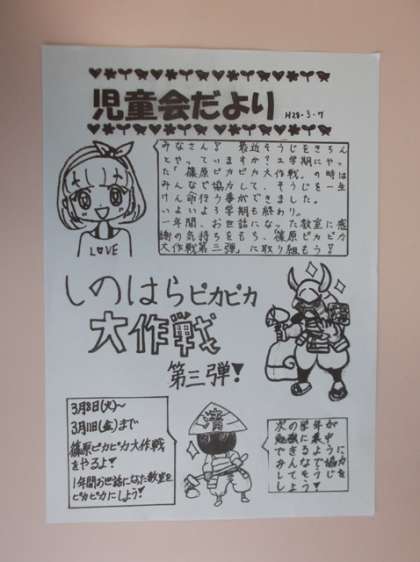 児童会だより
H28.3.7
みなさん！　最近そうじをきちん
とやっていますか？２学期にやっ
た「篠原ピカピカ大作戦」の時は
みんなで協力して、そうじを一生
けん命行う事ができました。
いよいよ３学期も終わり。
一年間、お世話になった教室に感
謝の気持ちをもち、篠原ピカピカ
大作戦第三弾」に取り組もう！
LOVE
しのはらピカピカ
大作戦
第三弾！
3月8日(火)〜
3月11日(金)まで
篠原ピカピカ大作戦
をやるよ！
1年間お世話になった教室を
ピカピカにしよう！
次の学年が
勉強に集中
できるように
みんなで協力
してそうじを
しよう！